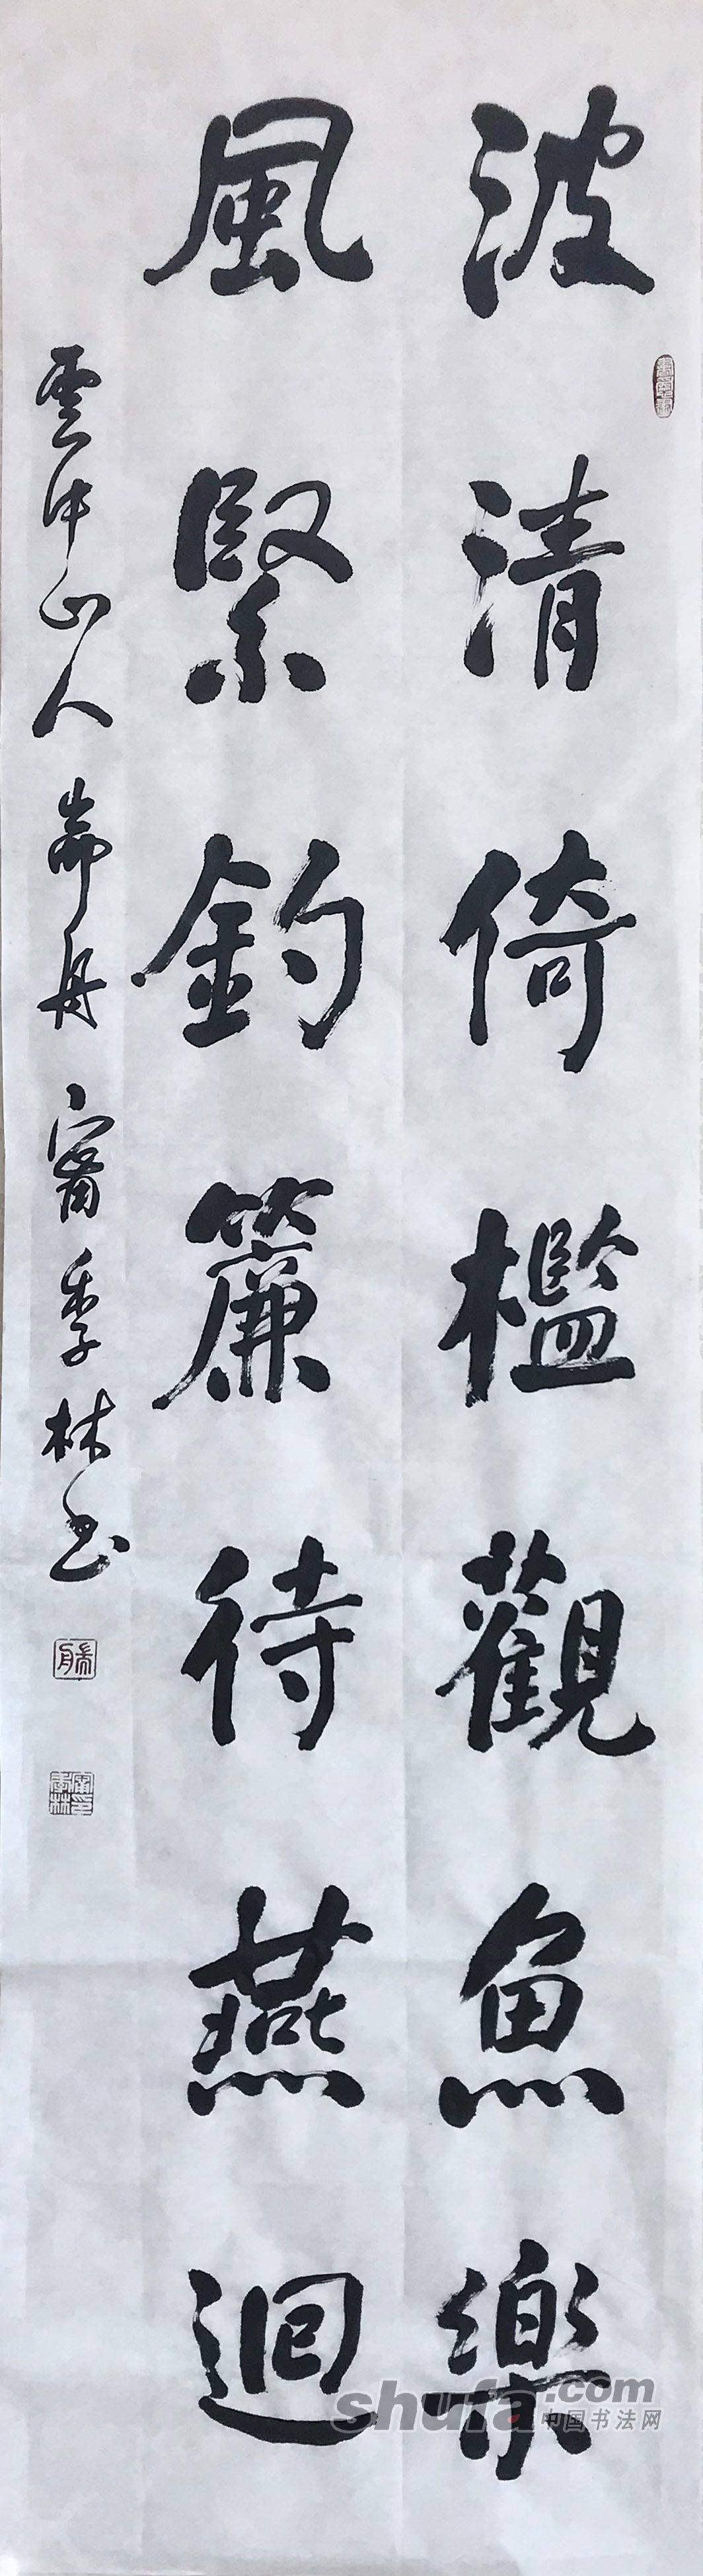 波清倚檻觀魚樂
風緊鈎簾待燕迴
雲中山人 崙丹 甯季林书
shufa.com
中国书法网